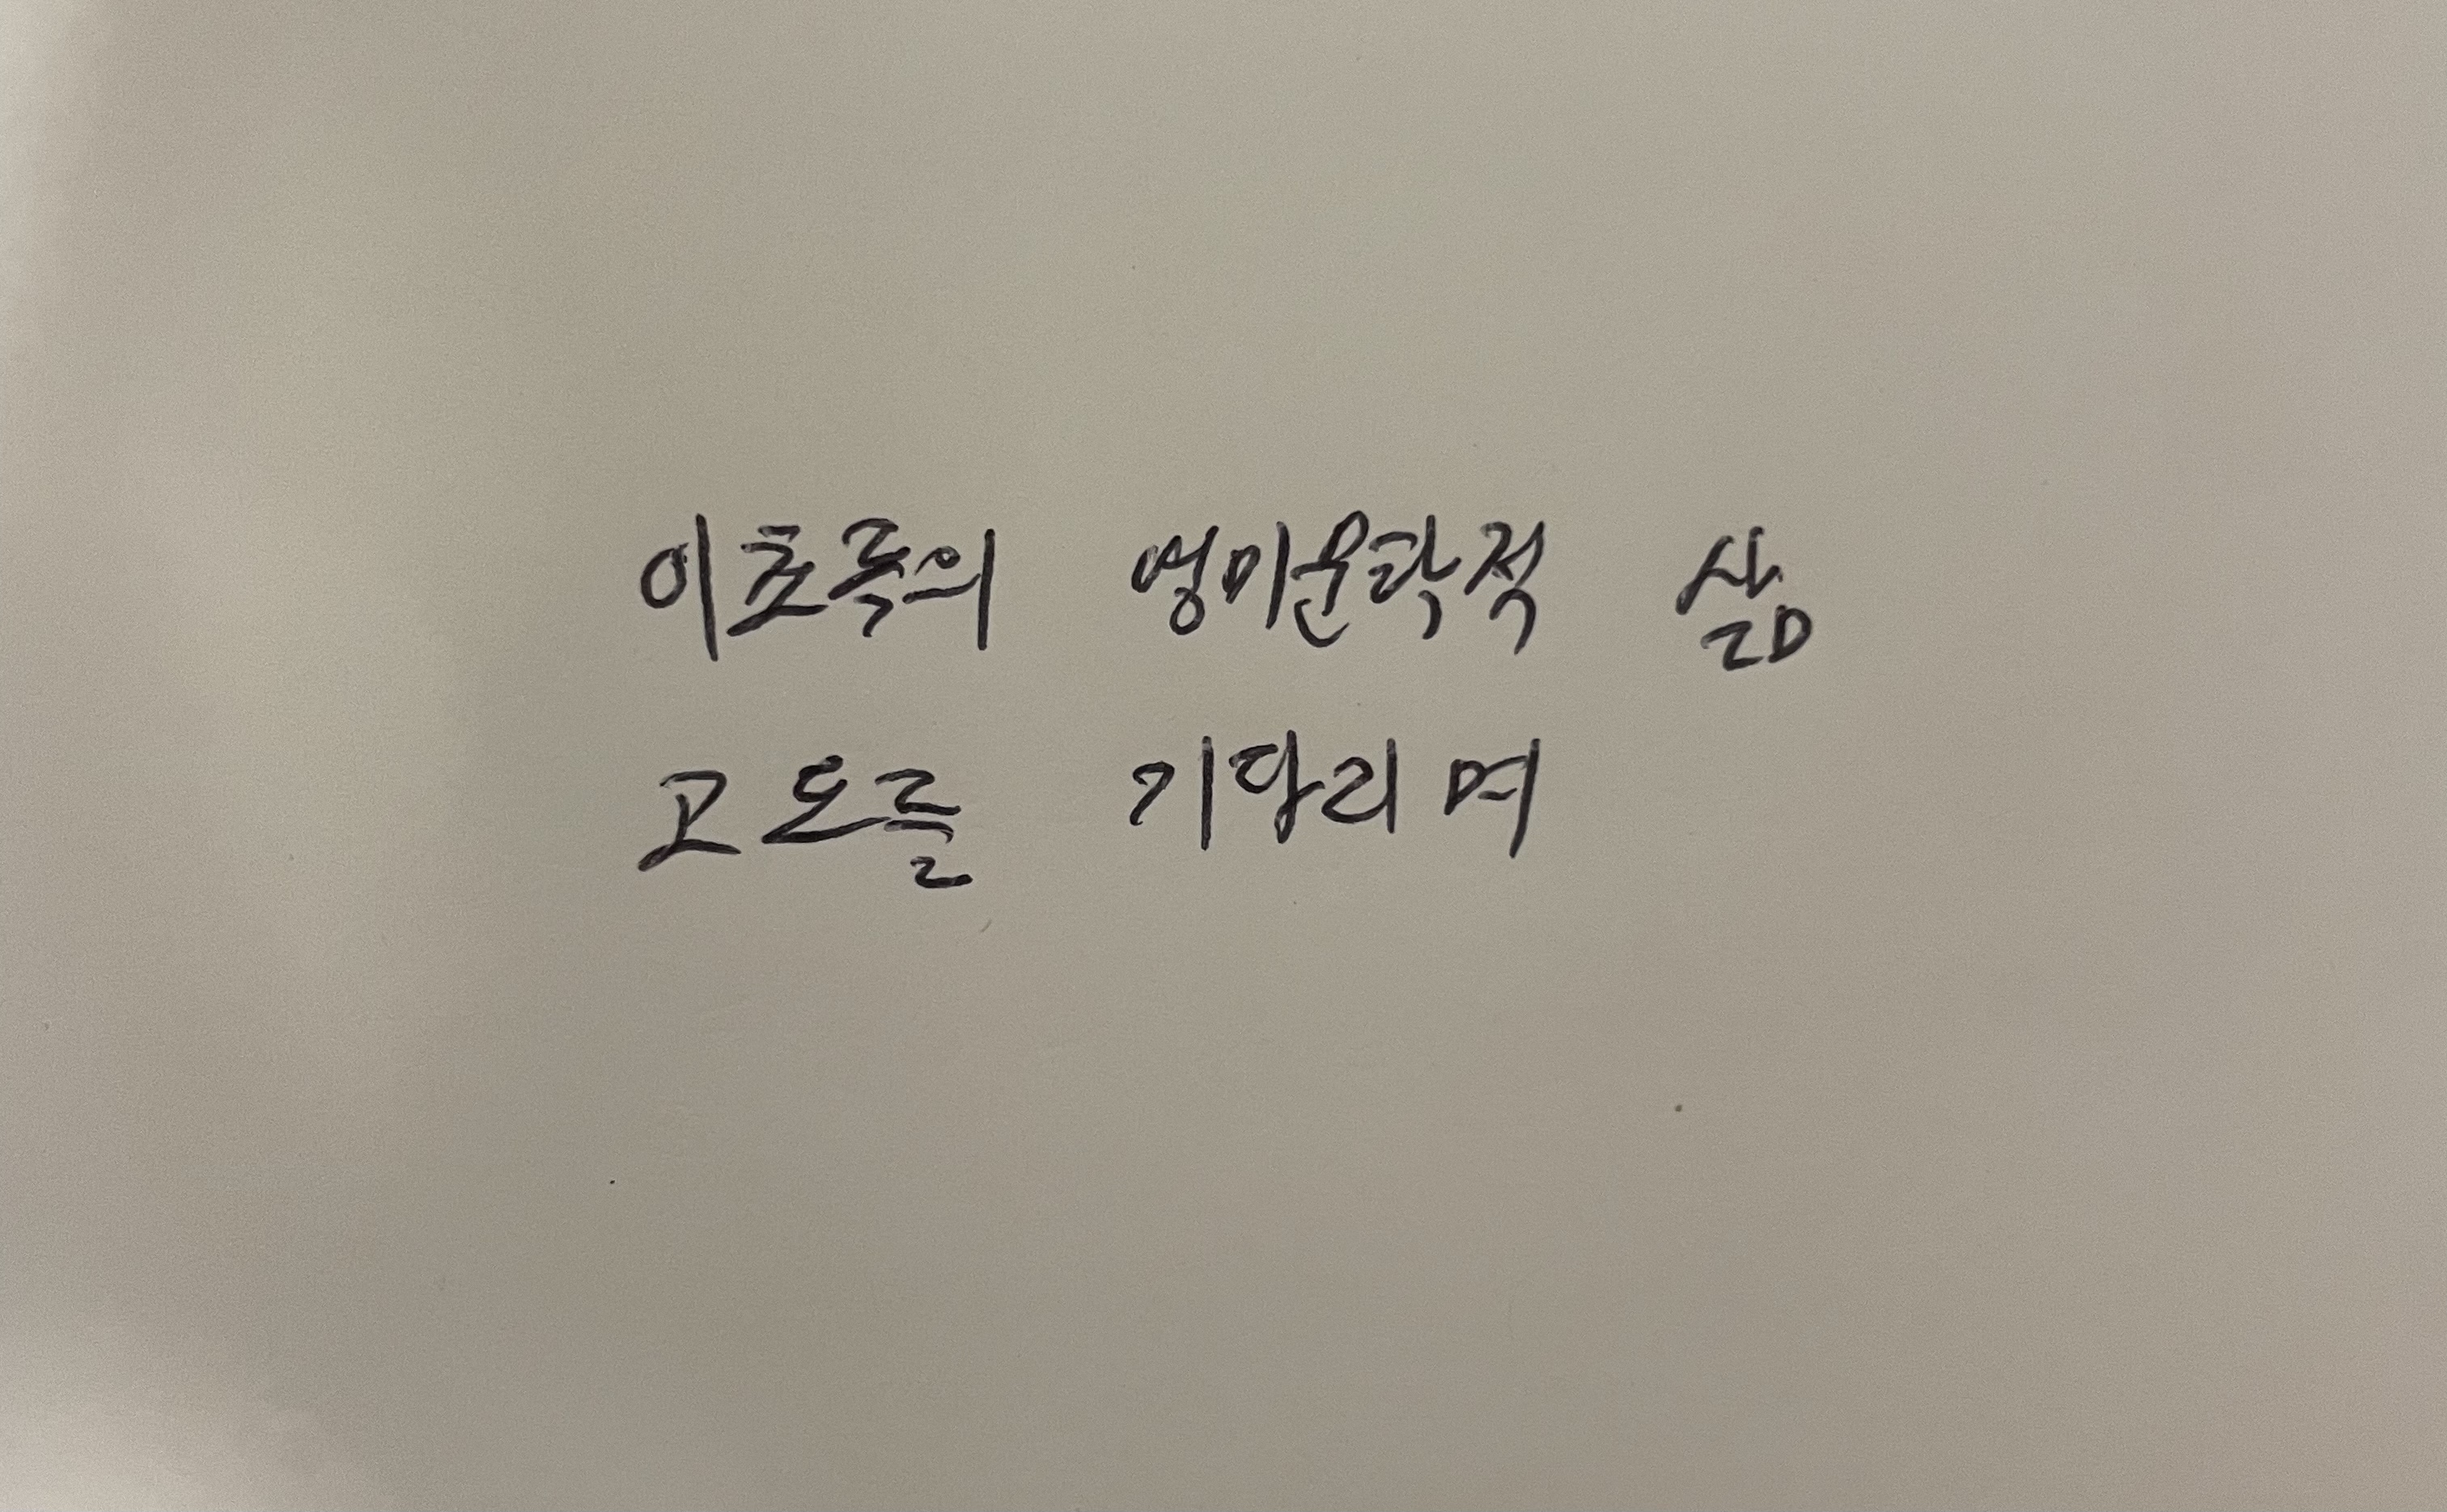 이초록의 영미문학적 삶
고도를 기다리며